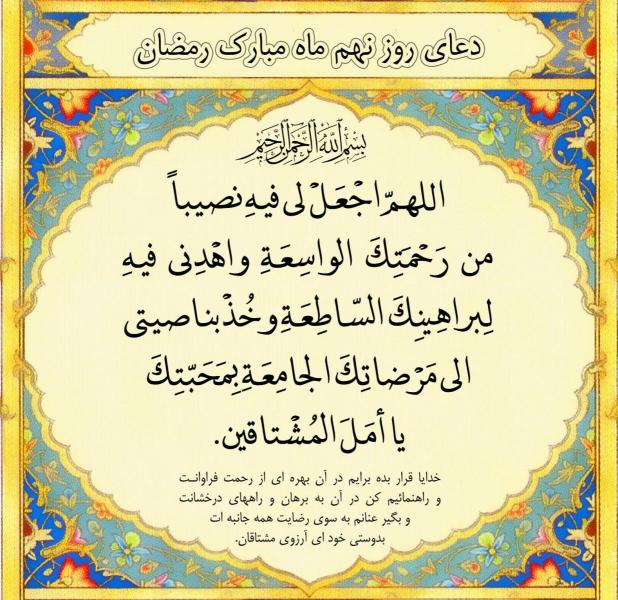 دعای روز نهم ماه مبارک رمضان
بِسْمِ اللَّهِ الرَّحْمَنِ الرَّحِيمِ
اللهمّ اجْعَلْ لی فیهِ نصیباً
من رَحْمَتِكَ الواسِعَةِ واهْدِنی فیهِ
لِبراهِینِكَ السّاطِعَةِ وخُذْ بناصیتی
الی مَرْضاتِكَ الجامِعَةِ بِمَحَبّتِكَ
یا أمَلَ المُشْتاقین.
خدایا قرار بده برایم در آن بهره ای از رحمت فراوانت
و راهنمائیم کن در آن به برهان و راههای درخشانت
و بگیر عنانم به سوی رضایت همه جانبه ات
بدوستی خود ای آرزوی مشتاقان.